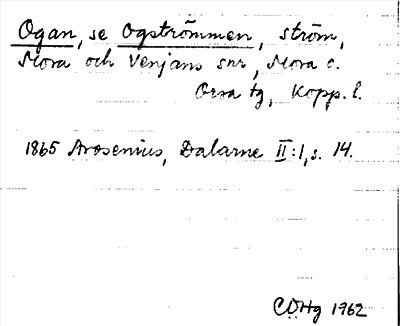 Ogan, se Ogströmmen, ström,
Mora och Venjans snr, Mora o.
Orsa tg, Kopp. l.
1865 Arosenius, Dalarne II:1, s. 14.
CÖHg 1962